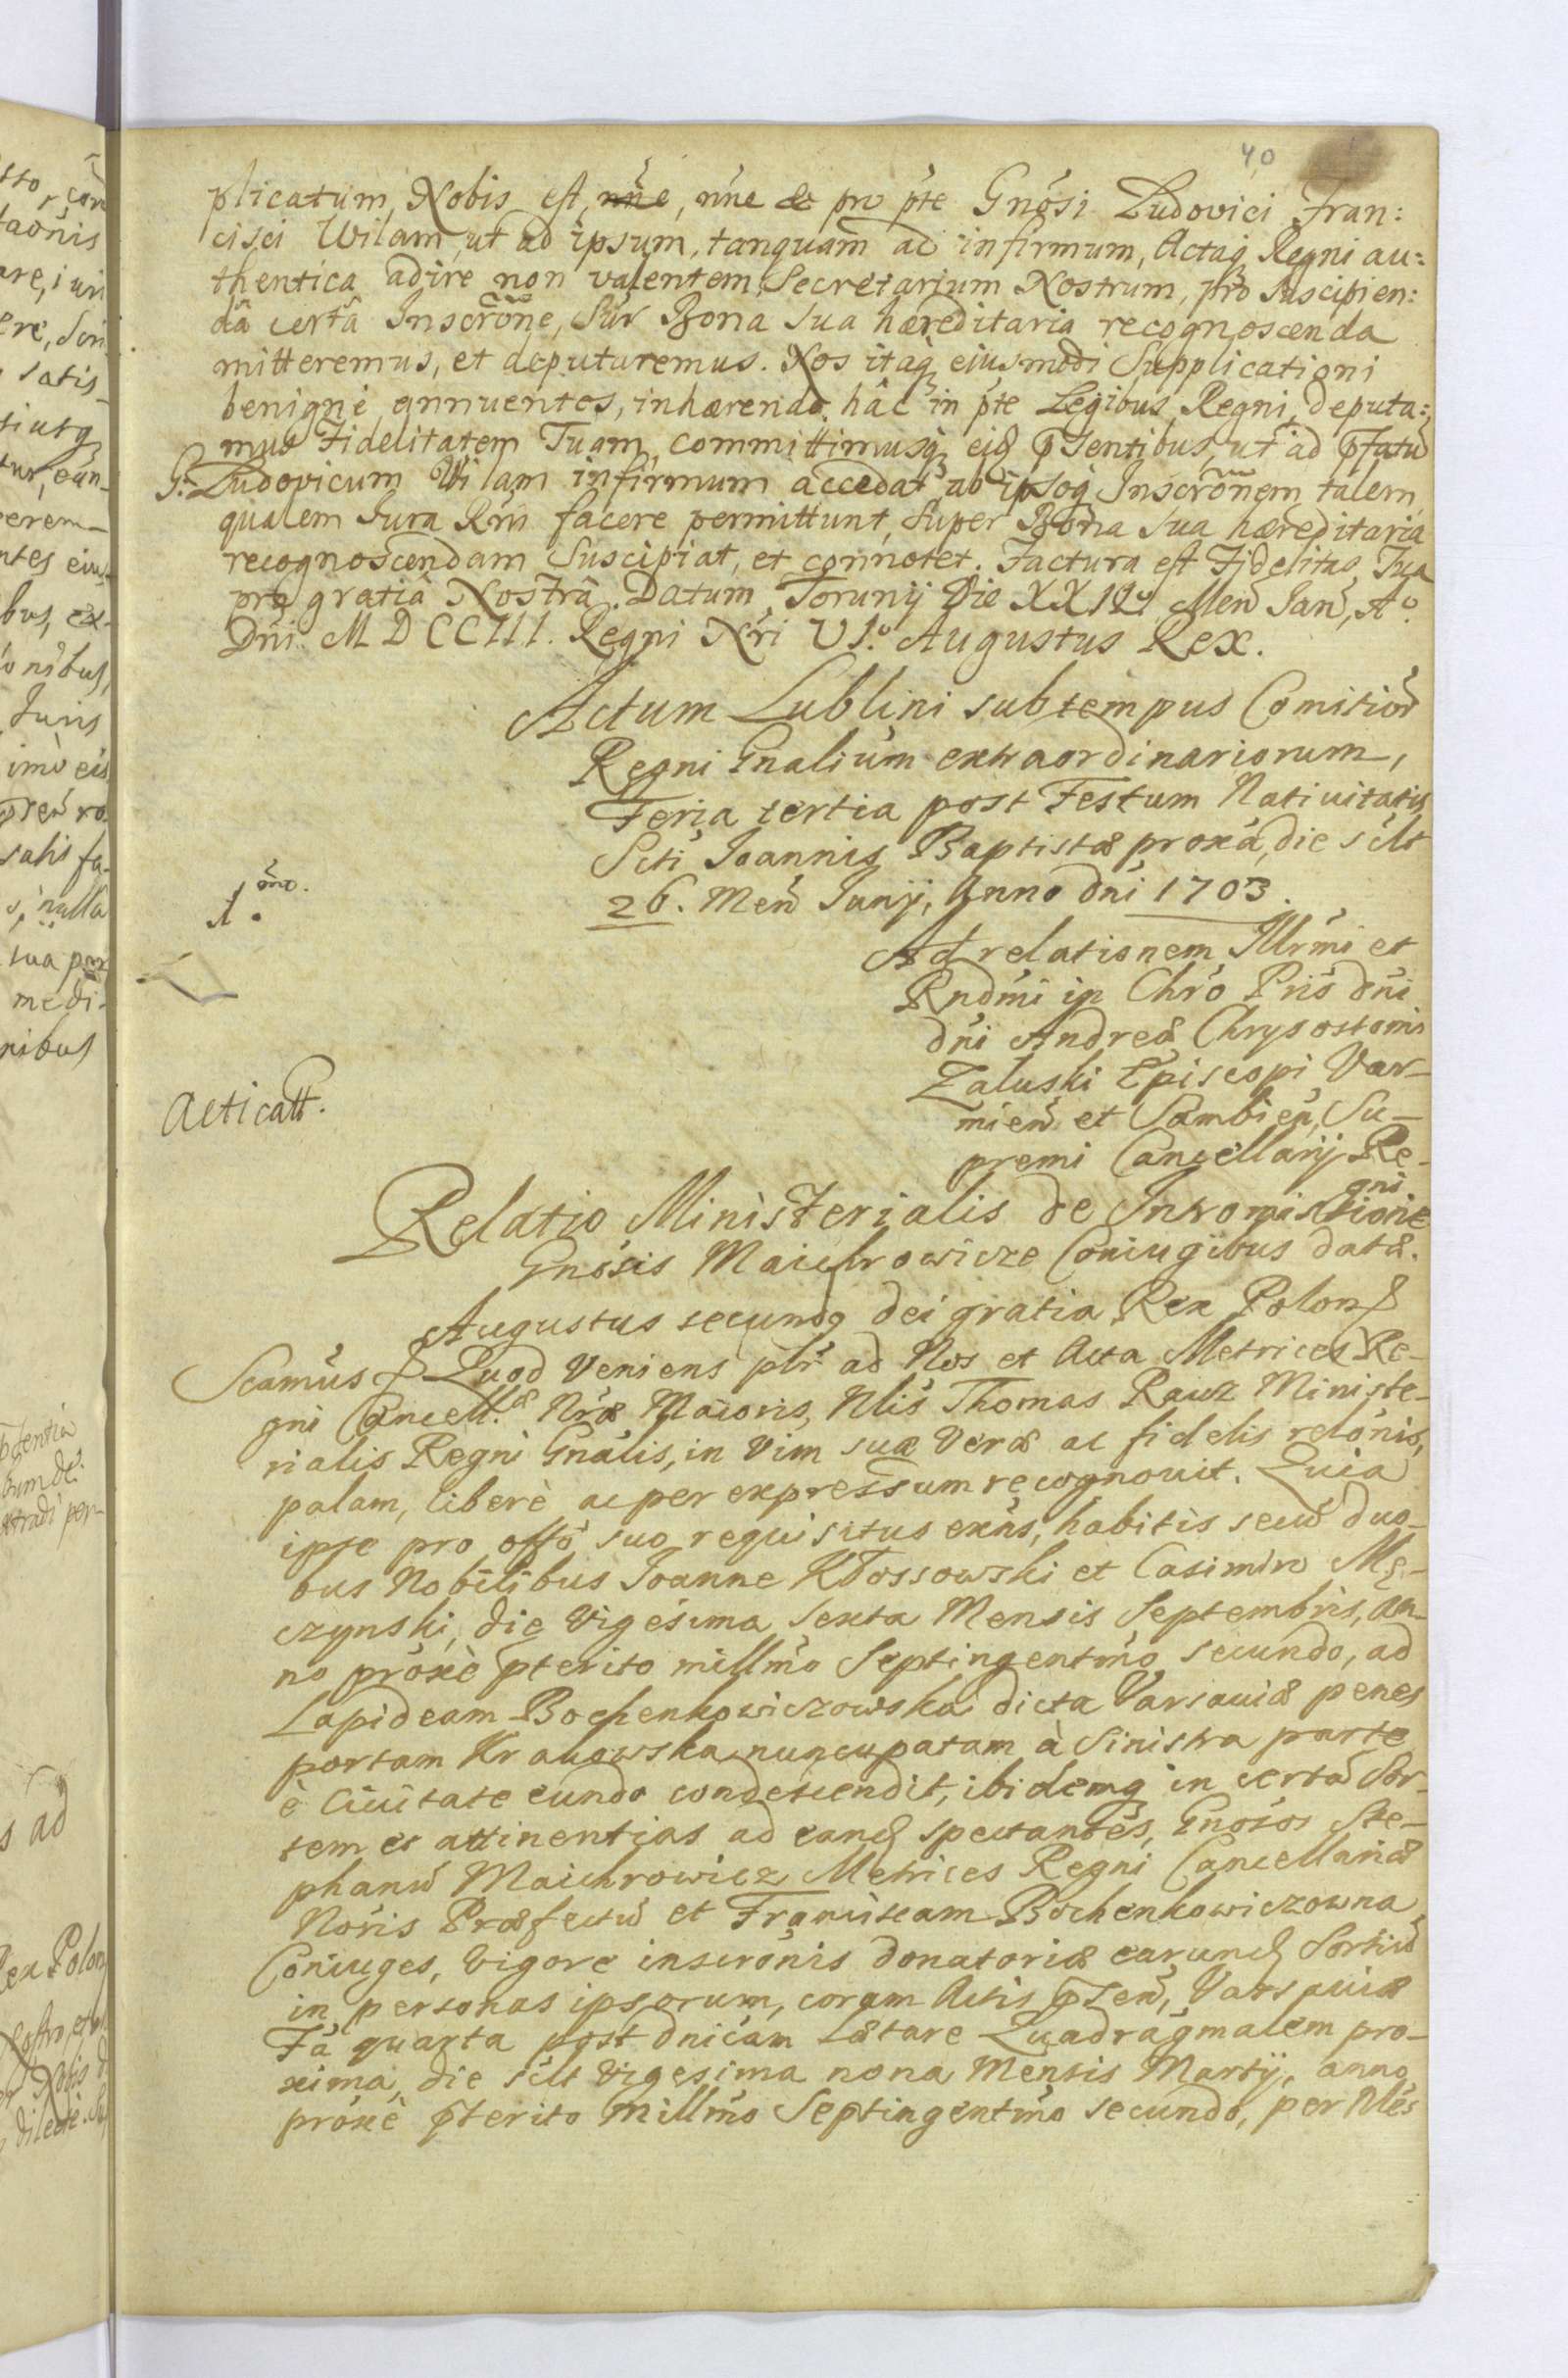 40
plicatum, Nobis est, nńe, nńe & pro pte Gnósi Ludovici Fran:
cisci Wilam, ut ad ipsum, tanquam ad infirmum, Actaq, Regni au:
thentica adire non valentem, Secretarium Nostrum, pro suscipien:
dâ certâ Inscrõne, Súr Bona sua hæreditaria recognoscenda
mitteremus, et deputaremus. Nos itaq ejusmodi Supplicationi
benignè annuentes, inhærendo hâc in pte Legibus Regni, deputa:
mus Fidelitatem Tuam, committimusq eid psentibus, ut ad pfatũ
G. Ludovicum Wilam infirmum accedat ab ipsoq Inscrõnem talem,
qualem Jura Rni facere permittunt, Super Bona sua hæreditaria
recognoscendam Suscipiat, et connotet. Factura est Fidelitas Tua
pro gratiâ Nostrâ. Datum Torunij Die XX Men Jan, Aº.
Dńi. MDCCIII. Regni Nri VIº. Augustus Rex.
Actum Lublini sub tempus Comitior
Regni Gnalium extraordinariorum,
Feria tertia post Festum Nativitatis
Scti Joannis Baptistæ proxa, die silt
26. Men Junij, Anno dni 1703.
1.ᵒᵐᵒ
Ad relationem Illrmi et
Rndmi in Chro Pris dni
dni Andreæ Chrysostomi
Zaluski Episcopi Var-
mien et Sambien, Su-
premi Cancellarij Re-
gni
Acticatt.
Relatio Ministerialis de Intromissione
Gnosis Maichrowicze Coniugibus datæ.
Augustus secundq dei gratia Rex Polon &
Scamus & Quod Veniens plr ad Nos et Acta Metrices Re-
gni Cancell.æ Nræ Maioris, Nlis Thomas Rausz Ministe-
rialis Regni Gnalis, in Vim suæ Veræ ac fidelis relonis,
palam, liberè ac per expressum recognovit. Quia
ipse pro offo suo requisitus exns, habitis secũ duo-
bus Nobilibus Joanne Kłossowski et Casimiro Mę-
czynski, die Vigesima Sexta Mensis Septembris, an-
no proxè pterito millmo Septingentmo secundo, ad
Lapideam Bochenkowiczowska dicta Varsaviæ penes
portam Krakowska nuncupatam à Sinistra parte
è Ciuitate eundo condescendit, ibidemq in certã Sor-
tem et attinentias ad eand spectantes, Gnosos Ste-
phanũ Maichrowicz Metrices Regni Cancellariæ
Noris Præfectũ et Franciscam Bochenkowiczowna
Coniuges, vigore inscronis donatoriæ earund Sortiũ
in personas ipsorum, coram Actis psen, Varsaviæ
Fa quarta post dnicam Lætare Quadragmalem pro-
xima, die silt Vigesima nona Mensis Martij, anno
proxè pterito Millmo Septingentmo secundo, per Nles